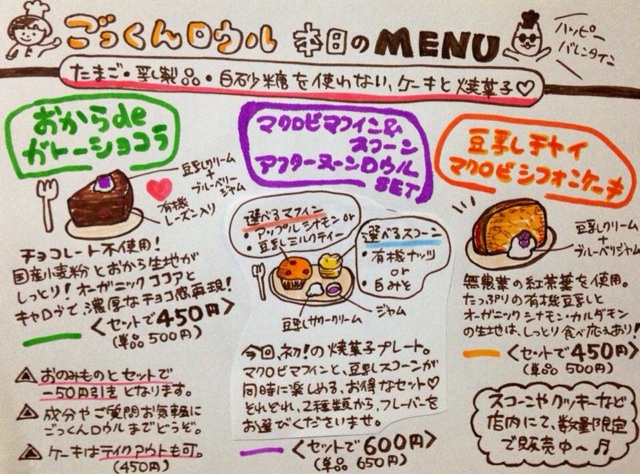 ごっくんロウル 本日のMENU
ハッピー
バレンタイン
たまご・乳製品・白砂糖を使わない、ケーキと焼菓子♡
おからde
ガトーショコラ
豆乳クリーム
+
ブルーベリー
ジャム
有機
レーズン入り
チョコレート不使用!
国産小麦粉とおから生地が
しっとり!オーガニックココアと
キャロブで、濃厚なチョコ感再現!
<セットで450円
(単品500円)
おのみものとセットで
−50円引きとなります。
成分やご質問お気軽に
ごっくんロウルまでどうぞ。
ケーキはテイクアウトも可。
(450円)
マクロビマフィン&
スコーン
アフターヌーンロウル
SET
選べるマフィン
・アップルシナモン or
・豆乳ミルクティー
選べるスコーン
・有機ナッツ
or
・白みそ
豆乳サワークリーム
ジャム
今回、初!の焼菓子プレート。
マクロビマフィンと、豆乳スコーンが
同時に楽しめる、お得なセット♡
それぞれ、2種類から、フレーバーを
お選びくださいませ。
<セットで600円
(単品650円)
豆乳チャイ
マクロビシフォンケーキ
豆乳クリーム
+
ブルーベリジャム
無農薬の紅茶葉を使用。
たっぷりの有機豆乳と
オーガニックシナモン・カルダモン
の生地は、しっとり食べ応えあり!
<セットで450円
(単品500円)
スコーンやクッキーなど
店内にて、数量限定
で販売中〜♬